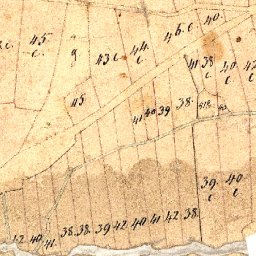 45. c.
9
43 c
44. c
46. c.
40.
41
38 c
40. c
42
45
41
40
39
38.
39 c
40. c
42. 40. 41. 38. 38. 39 42 40 41 42. 38.